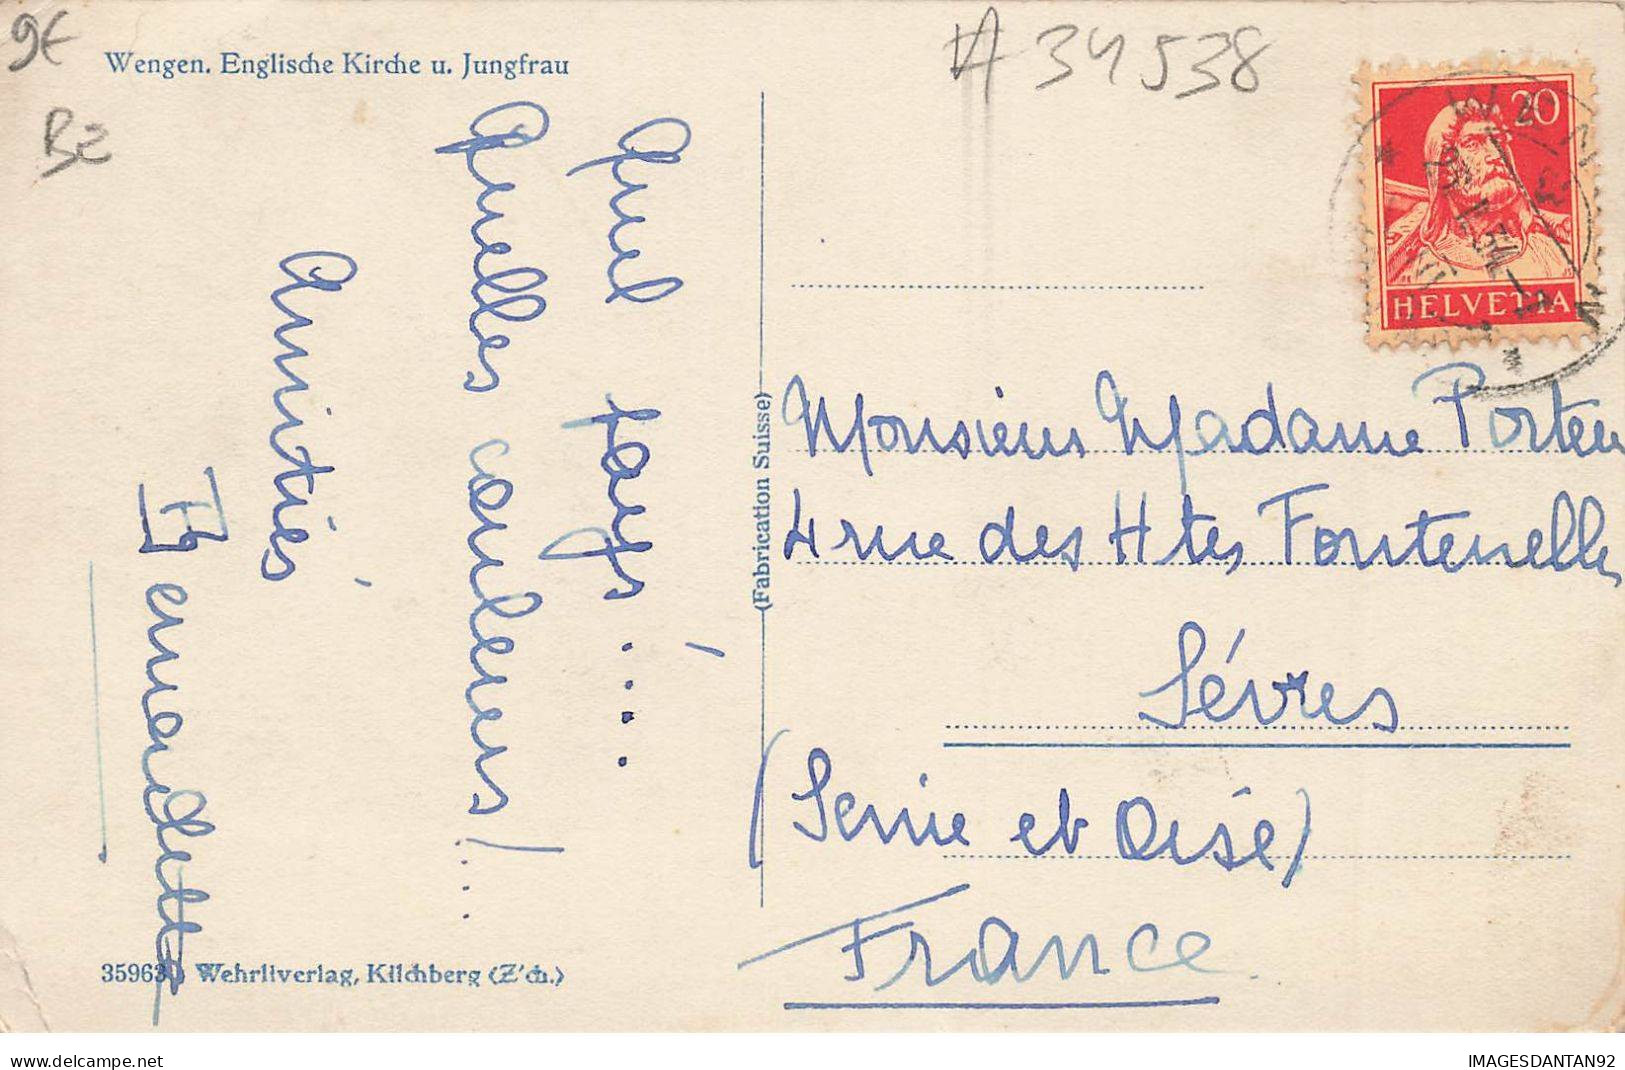 9€
B2
Wengen. Englische Kirche u. Jungfrau
A 34538
20
HELVETIA
WENGEN
Quel pays....
Quelles couleurs!...
Amitiés
Bernadette
(Fabrication Suisse)
Monsieur Madame Porteu
4 rue des Htes Fontenelles
Sèvres
(Seine et Oise)
France
35963 Wehrliverlag, Kilchberg (Z'ch.)
www.delcampe.net
IMAGESDANTAN92